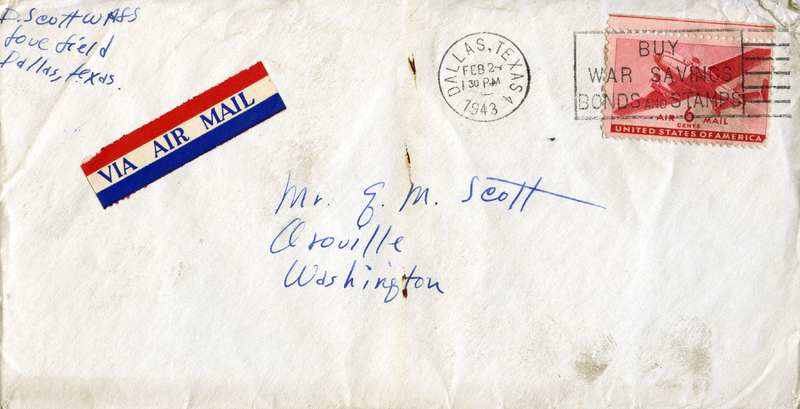 D. Scott WASS
Love Field
Dallas, Texas.
VIA AIR MAIL
DALLAS, TEXAS 4
FEB 2
1 30 PM
1943
BUY
WAR SAVINGS
BONDS AND STAMPS
AIR 6 MAIL
CENTS
UNITED STATES OF AMERICA
Mr. E. M. Scott
Oroville
Washington